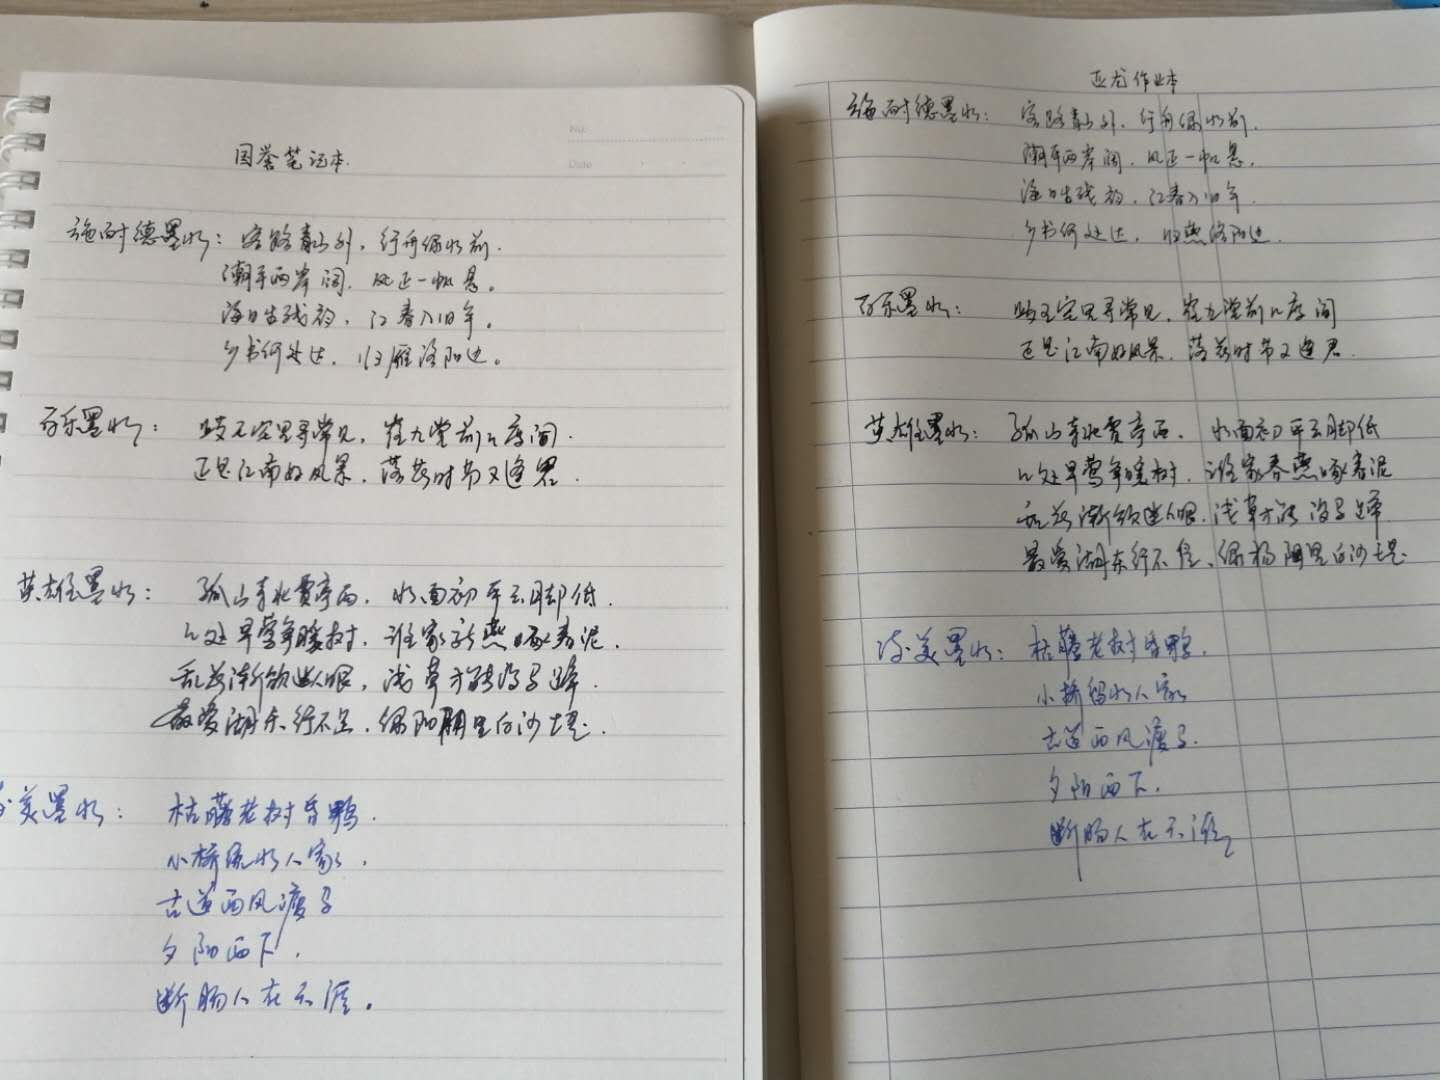 No.
Date
国誉笔记本
施耐德墨水：客路青山外，行舟绿水前.
潮平两岸阔，风正一帆悬。
海日生残夜，江春入旧年。
乡书何处达，归雁洛阳边。
百乐墨水：岐王宅里寻常见，崔九堂前几度闻.
正是江南好风景，落花时节又逢君.
英雄墨水：孤山寺北贾亭西，水面初平云脚低.
几处早莺争暖树，谁家新燕啄春泥.
乱花渐欲迷人眼，浅草才能没马蹄.
最爱湖东行不足，绿阴里白沙堤.
美墨水：枯藤老树昏鸦.
小桥流水人家.
古道西风瘦马
夕阳西下.
断肠人在天涯。
亚龙作业本
施耐德墨水：客路青山外，行舟绿水前.
潮平两岸阔，风正一帆悬.
海日生残夜，江春入旧年.
乡书何处达，归燕洛阳边.
百乐墨水：岐王宅里寻常见，崔九堂前几度闻
正是江南好风景，落花时节又逢君.
英雄墨水：孤山寺北贾亭西，水面初平云脚低
几处早莺争暖树，谁家春燕啄春泥
乱花渐欲迷人眼，浅草才能没马蹄
最爱湖东行不足，绿杨阴里白沙堤.
美墨水：枯藤老树昏鸦.
小桥流水人家
古道西风瘦马.
夕阳西下.
断肠人在天涯